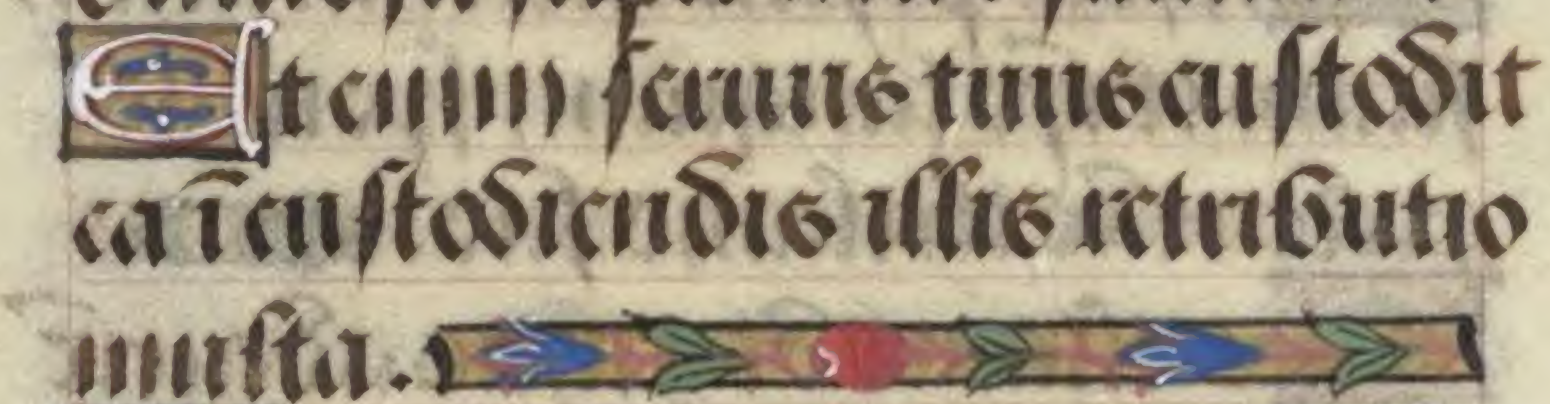 Et enim seruus tuus custodit
ea ī custodiendis illis retributio
multa.